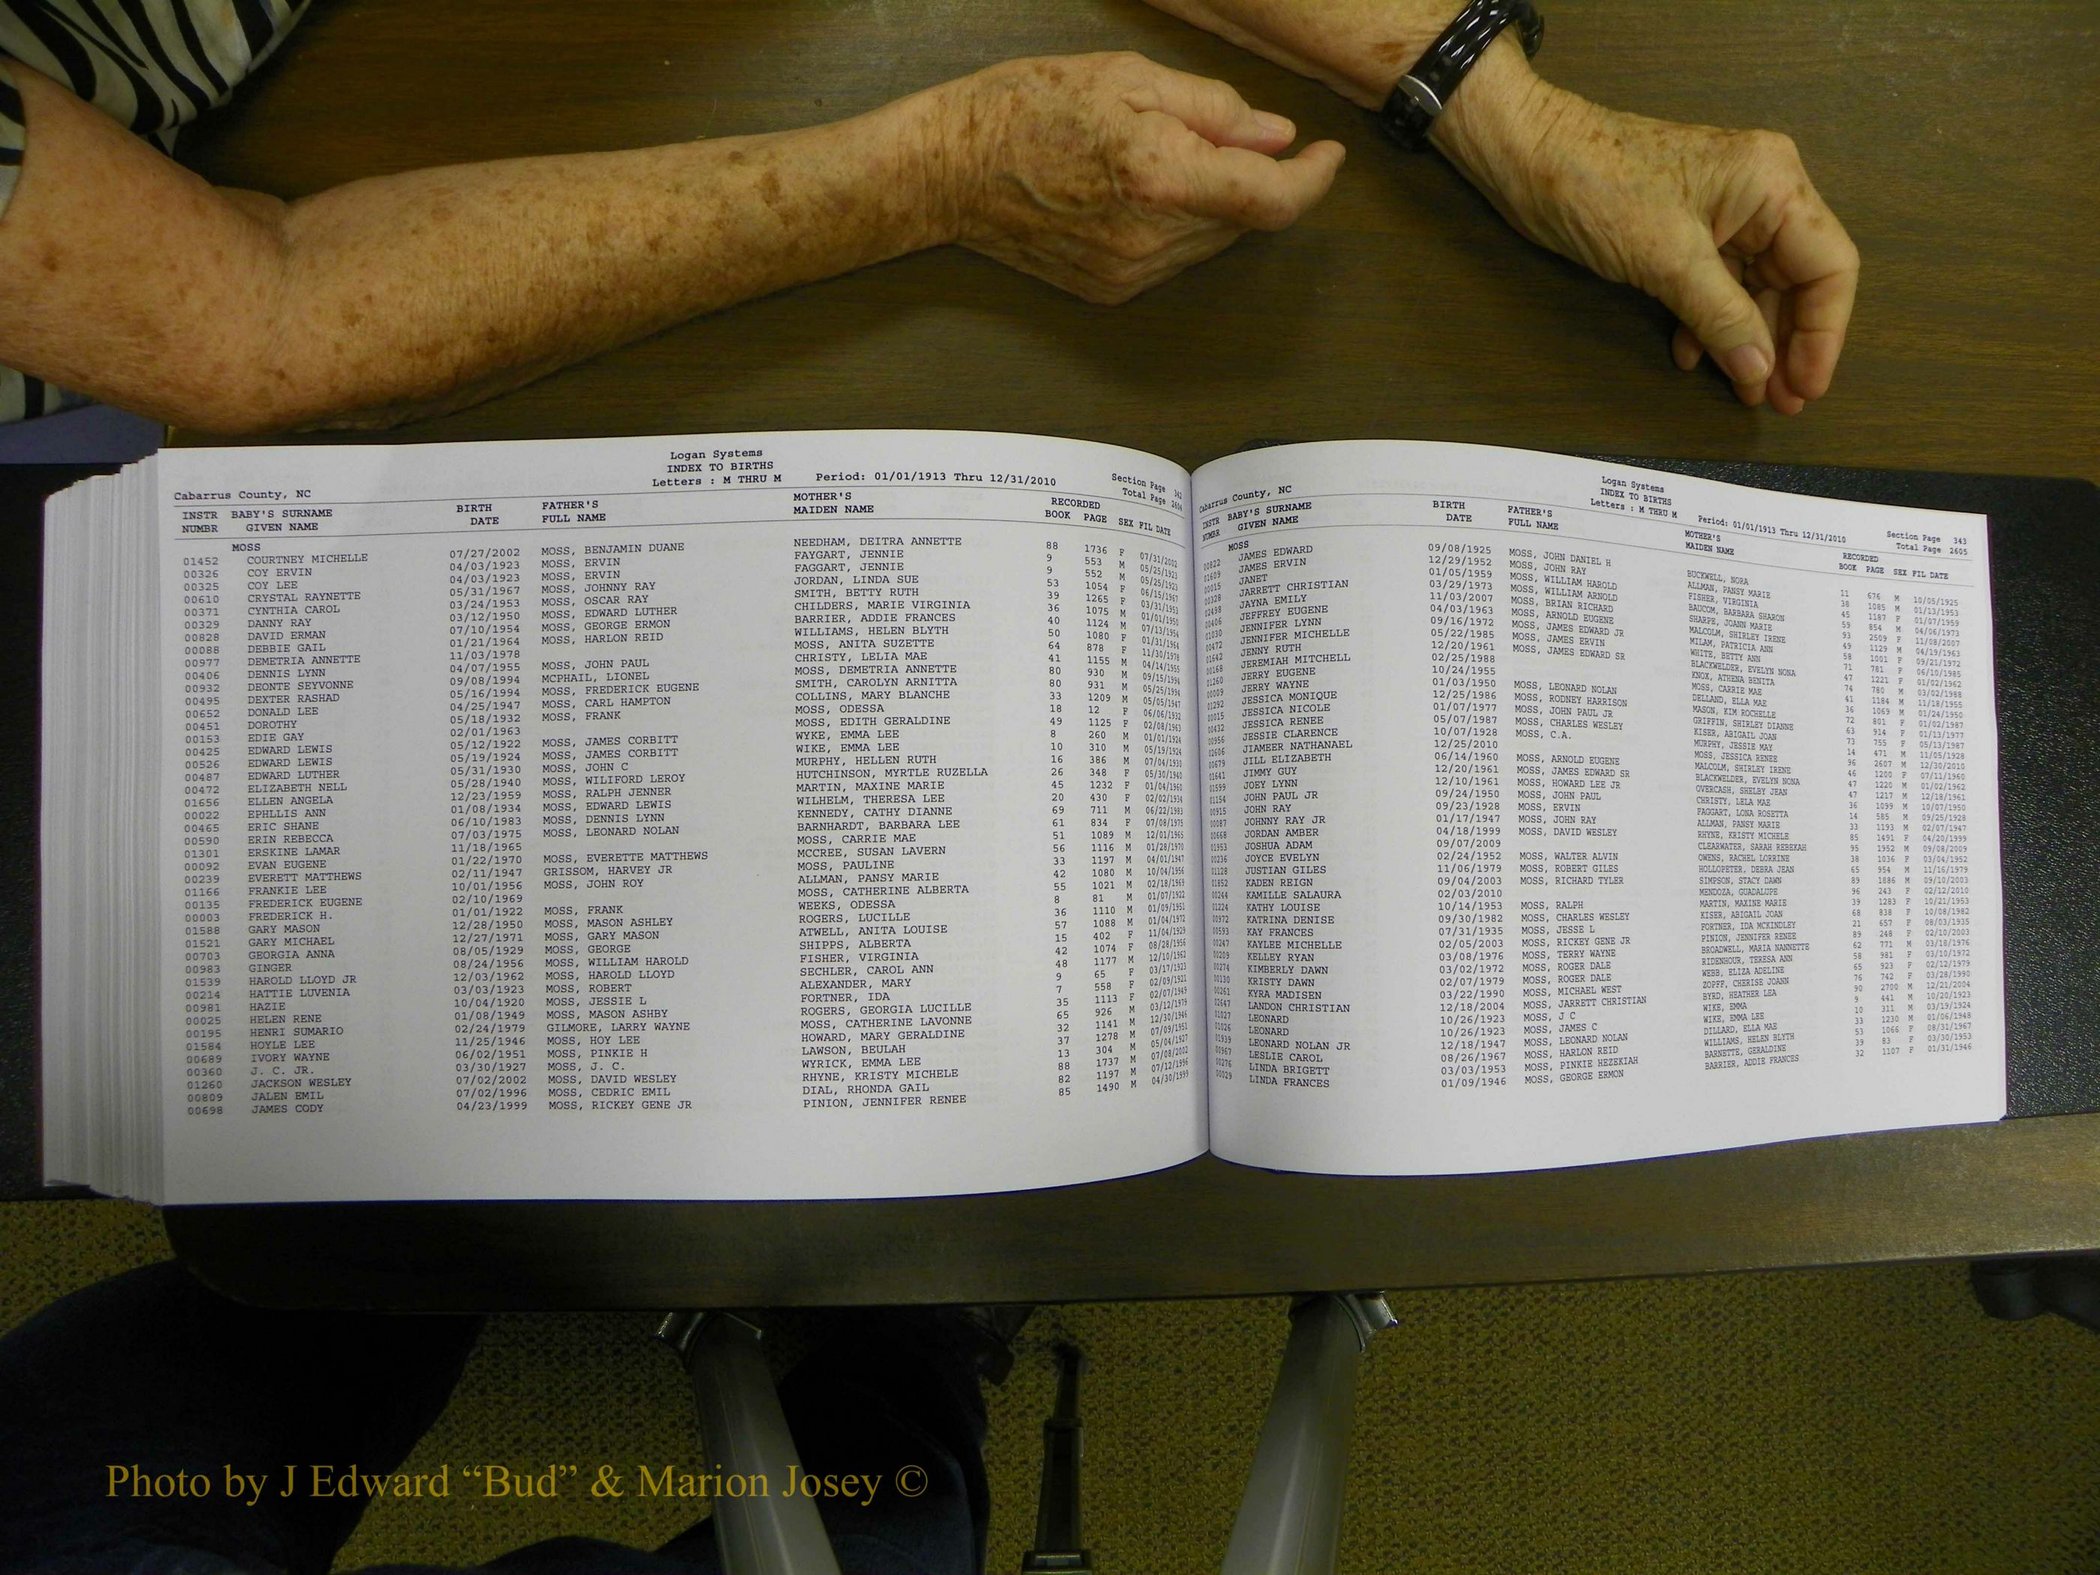 Logan Systems
INDEX TO BIRTHS
Letters : M THRU M Period: 01/01/1913 Thru 12/31/2010
Cabarrus County, NC Section Page 342
Total Page 2604
INSTR BABY'S SURNAME BIRTH FATHER'S MOTHER'S RECORDED
NUMBR GIVEN NAME DATE FULL NAME MAIDEN NAME BOOK PAGE SEX FIL DATE
MOSS
01452 COURTNEY MICHELLE 07/27/2002 MOSS, BENJAMIN DUANE NEEDHAM, DEITRA ANNETTE 88 1736 F 07/31/2002
00326 COY ERVIN 04/03/1923 MOSS, ERVIN FAYGART, JENNIE 9 553 M 05/25/1923
00325 COY LEE 04/03/1923 MOSS, ERVIN FAGGART, JENNIE 9 552 M 05/25/1923
00610 CRYSTAL RAYNETTE 05/31/1967 MOSS, JOHNNY RAY JORDAN, LINDA SUE 53 1054 F 06/15/1967
00371 CYNTHIA CAROL 03/24/1953 MOSS, OSCAR RAY SMITH, BETTY RUTH 39 1265 F 03/31/1953
00329 DANNY RAY 03/12/1950 MOSS, EDWARD LUTHER CHILDERS, MARIE VIRGINIA 36 1075 M
00828 DAVID ERMAN 07/10/1954 MOSS, GEORGE ERMON BARRIER, ADDIE FRANCES 40 1124 M 07/13/1954
00088 DEBBIE GAIL 01/21/1964 MOSS, HARLON REID WILLIAMS, HELEN BLYTH 50 1080 F 01/31/1964
00977 DEMETRIA ANNETTE 11/03/1978 MOSS, ANITA SUZETTE 64 878 F 11/30/1978
00406 DENNIS LYNN 04/07/1955 MOSS, JOHN PAUL CHRISTY, LELIA MAE 41 1155 M 04/14/1955
00932 DEONTE SEYVONNE 09/08/1994 MCPHAIL, LIONEL MOSS, DEMETRIA ANNETTE 80 930 M 09/15/1994
00495 DEXTER RASHAD 05/16/1994 MOSS, FREDERICK EUGENE SMITH, CAROLYN ARNITTA 80 931 M 05/25/1994
00652 DONALD LEE 04/25/1947 MOSS, CARL HAMPTON COLLINS, MARY BLANCHE 33 1209 M 05/05/1947
00451 DOROTHY 05/18/1932 MOSS, FRANK MOSS, ODESSA 18 12 F 06/06/1932
00153 EDIE GAY 02/01/1963 MOSS, EDITH GERALDINE 49 1125 F 02/08/1963
00425 EDWARD LEWIS 05/12/1922 MOSS, JAMES CORBITT WYKE, EMMA LEE 8 260 M 01/01/1924
00526 EDWARD LEWIS 05/19/1924 MOSS, JAMES CORBITT WIKE, EMMA LEE 10 310 M 05/19/1924
00487 EDWARD LUTHER 05/31/1930 MOSS, JOHN C MURPHY, HELLEN RUTH 16 386 M 07/04/1930
00472 ELIZABETH NELL 05/28/1940 MOSS, WILIFORD LEROY HUTCHINSON, MYRTLE RUZELLA 26 348 F 05/30/1940
01656 ELLEN ANGELA 12/23/1959 MOSS, RALPH JENNER MARTIN, MAXINE MARIE 45 1232 F 01/04/1960
00022 EPHLLIS ANN 01/08/1934 MOSS, EDWARD LEWIS WILHELM, THERESA LEE 20 430 F 02/02/1934
00465 ERIC SHANE 06/10/1983 MOSS, DENNIS LYNN KENNEDY, CATHY DIANNE 69 711 M 06/22/1983
00590 ERIN REBECCA 07/03/1975 MOSS, LEONARD NOLAN BARNHARDT, BARBARA LEE 61 834 F 07/08/1975
01301 ERSKINE LAMAR 11/18/1965 MOSS, CARRIE MAE 51 1089 M 12/01/1965
00092 EVAN EUGENE 01/22/1970 MOSS, EVERETTE MATTHEWS MCCREE, SUSAN LAVERN 56 1116 M 01/28/1970
00239 EVERETT MATTHEWS 02/11/1947 GRISSOM, HARVEY JR MOSS, PAULINE 33 1197 M 04/01/1947
01166 FRANKIE LEE 10/01/1956 MOSS, JOHN ROY ALLMAN, PANSY MARIE 42 1080 M 10/04/1956
00135 FREDERICK EUGENE 02/10/1969 MOSS, CATHERINE ALBERTA 55 1021 M 02/18/1969
00003 FREDERICK H. 01/01/1922 MOSS, FRANK WEEKS, ODESSA 8 81 M 01/07/1922
01588 GARY MASON 12/28/1950 MOSS, MASON ASHLEY ROGERS, LUCILLE 36 1110 M 01/09/1951
01521 GARY MICHAEL 12/27/1971 MOSS, GARY MASON ATWELL, ANITA LOUISE 57 1088 M 01/04/1972
00703 GEORGIA ANNA 08/05/1929 MOSS, GEORGE SHIPPS, ALBERTA 15 402 F 11/04/1929
00983 GINGER 08/24/1956 MOSS, WILLIAM HAROLD FISHER, VIRGINIA 42 1074 F 08/28/1956
01539 HAROLD LLOYD JR 12/03/1962 MOSS, HAROLD LLOYD SECHLER, CAROL ANN 48 1177 M 12/10/1962
00214 HATTIE LUVENIA 03/03/1923 MOSS, ROBERT ALEXANDER, MARY 9 65 F 03/17/1923
00981 HAZIE 10/04/1920 MOSS, JESSIE L FORTNER, IDA 7 558 F 02/09/1921
00025 HELEN RENE 01/08/1949 MOSS, MASON ASHBY ROGERS, GEORGIA LUCILLE 35 1113 F 02/07/1949
00195 HENRI SUMARIO 02/24/1979 GILMORE, LARRY WAYNE MOSS, CATHERINE LAVONNE 65 926 M 03/12/1979
01584 HOYLE LEE 11/25/1946 MOSS, HOY LEE HOWARD, MARY GERALDINE 32 1141 M 12/30/1946
00689 IVORY WAYNE 06/02/1951 MOSS, PINKIE H LAWSON, BEULAH 37 1278 M 07/09/1951
00360 J. C. JR. 03/30/1927 MOSS, J. C. WYRICK, EMMA LEE 13 304 M 05/04/1927
01260 JACKSON WESLEY 07/02/2002 MOSS, DAVID WESLEY RHYNE, KRISTY MICHELE 88 1737 M 07/08/2002
00809 JALEN EMIL 07/02/1996 MOSS, CEDRIC EMIL DIAL, RHONDA GAIL 82 1197 M 07/12/1996
00698 JAMES CODY 04/23/1999 MOSS, RICKEY GENE JR PINION, JENNIFER RENEE 85 1490 M 04/30/1999
Logan Systems
INDEX TO BIRTHS
Letters : M THRU M Period: 01/01/1913 Thru 12/31/2010
Cabarrus County, NC Section Page 343
Total Page 2605
INSTR BABY'S SURNAME BIRTH FATHER'S MOTHER'S RECORDED
NUMBR GIVEN NAME DATE FULL NAME MAIDEN NAME BOOK PAGE SEX FIL DATE
MOSS
00822 JAMES EDWARD 09/08/1925 MOSS, JOHN DANIEL H BUCKWELL, NORA 11 676 M 10/05/1925
01609 JAMES ERVIN 12/29/1952 MOSS, JOHN RAY ALLMAN, PANSY MARIE 38 1085 M 01/13/1953
00015 JANET 01/05/1959 MOSS, WILLIAM HAROLD FISHER, VIRGINIA 45 1187 F 01/07/1959
00328 JARRETT CHRISTIAN 03/29/1973 MOSS, WILLIAM ARNOLD BAUCOM, BARBARA SHARON 59 854 M 04/06/1973
02498 JAYNA EMILY 11/03/2007 MOSS, BRIAN RICHARD SHARPE, JOANN MARIE 93 2509 F 11/08/2007
00406 JEFFREY EUGENE 04/03/1963 MOSS, ARNOLD EUGENE MALCOLM, SHIRLEY IRENE 49 1129 M 04/19/1963
01030 JENNIFER LYNN 09/16/1972 MOSS, JAMES EDWARD JR MILAM, PATRICIA ANN 58 1001 F 09/21/1972
00472 JENNIFER MICHELLE 05/22/1985 MOSS, JAMES ERVIN WHITE, BETTY ANN 71 781 F 06/10/1985
01642 JENNY RUTH 12/20/1961 MOSS, JAMES EDWARD SR BLACKWELDER, EVELYN NONA 47 1221 F 01/02/1962
00168 JEREMIAH MITCHELL 02/25/1988 KNOX, ATHENA BENITA 74 780 M 03/02/1988
01260 JERRY EUGENE 10/24/1955 MOSS, CARRIE MAE 41 1184 M 11/18/1955
00009 JERRY WAYNE 01/03/1950 MOSS, LEONARD NOLAN DELLAND, ELLA MAE 36 1069 M 01/24/1950
01292 JESSICA MONIQUE 12/25/1986 MOSS, RODNEY HARRISON MASON, KIM ROCHELLE 72 801 F 01/02/1987
00015 JESSICA NICOLE 01/07/1977 MOSS, JOHN PAUL JR GRIFFIN, SHIRLEY DIANNE 63 914 F 01/13/1977
00432 JESSICA RENEE 05/07/1987 MOSS, CHARLES WESLEY KISER, ABIGAIL JOAN 73 755 F 05/13/1987
00956 JESSIE CLARENCE 10/07/1928 MOSS, C.A. MURPHY, JESSIE MAY 14 471 M 11/05/1928
02606 JIAMEER NATHANAEL 12/25/2010 MOSS, JESSICA RENEE 96 2607 M 12/30/2010
00679 JILL ELIZABETH 06/14/1960 MOSS, ARNOLD EUGENE MALCOLM, SHIRLEY IRENE 46 1200 F 07/11/1960
01641 JIMMY GUY 12/20/1961 MOSS, JAMES EDWARD SR BLACKWELDER, EVELYN NONA 47 1220 M 01/02/1962
01599 JOEY LYNN 12/10/1961 MOSS, HOWARD LEE JR OVERCASH, SHELBY JEAN 47 1217 M 12/18/1961
01154 JOHN PAUL JR 09/24/1950 MOSS, JOHN PAUL CHRISTY, LELA MAE 36 1099 M 10/07/1950
00915 JOHN RAY 09/23/1928 MOSS, ERVIN FAGGART, LONA ROSETTA 14 585 M 09/25/1928
00087 JOHNNY RAY JR 01/17/1947 MOSS, JOHN RAY ALLMAN, PANSY MARIE 33 1193 M 02/07/1947
00668 JORDAN AMBER 04/18/1999 MOSS, DAVID WESLEY RHYNE, KRISTY MICHELE 85 1491 F 04/20/1999
01953 JOSHUA ADAM 09/07/2009 CLEARWATER, SARAH REBEKAH 95 1952 M 09/08/2009
00236 JOYCE EVELYN 02/24/1952 MOSS, WALTER ALVIN OWENS, RACHEL LORRINE 38 1036 F 03/04/1952
01128 JUSTIAN GILES 11/06/1979 MOSS, ROBERT GILES HOLLOPETER, DEBRA JEAN 65 954 M 11/16/1979
01852 KADEN REIGN 09/04/2003 MOSS, RICHARD TYLER SIMPSON, STACY DAWN 89 1886 M 09/10/2003
00244 KAMILLE SALAURA 02/03/2010 MENDOZA, GUADALUPE 96 243 F 02/12/2010
01224 KATHY LOUISE 10/14/1953 MOSS, RALPH MARTIN, MAXINE MARIE 39 1283 F 10/21/1953
00972 KATRINA DENISE 09/30/1982 MOSS, CHARLES WESLEY KISER, ABIGAIL JOAN 68 838 F 10/08/1982
00593 KAY FRANCES 07/31/1935 MOSS, JESSE L FORTNER, IDA MCKINDLEY 21 657 F 08/03/1935
00247 KAYLEE MICHELLE 02/05/2003 MOSS, RICKEY GENE JR PINION, JENNIFER RENEE 89 248 F 02/10/2003
00209 KELLEY RYAN 03/08/1976 MOSS, TERRY WAYNE BROADWELL, MARIA NANNETTE 62 771 M 03/18/1976
00274 KIMBERLY DAWN 03/02/1972 MOSS, ROGER DALE RIDENHOUR, TERESA ANN 58 981 F 03/10/1972
00130 KRISTY DAWN 02/07/1979 MOSS, ROGER DALE WEBB, ELIZA ADELINE 65 923 F 02/12/1979
00261 KYRA MADISEN 03/22/1990 MOSS, MICHAEL WEST ZOPFF, CHERISE JOANN 76 742 F 03/28/1990
02647 LANDON CHRISTIAN 12/18/2004 MOSS, JARRETT CHRISTIAN BYRD, HEATHER LEA 90 2700 M 12/21/2004
01027 LEONARD 10/26/1923 MOSS, J C WIKE, EMMA 9 441 M 10/20/1923
01026 LEONARD 10/26/1923 MOSS, JAMES C WIKE, EMMA LEE 10 311 M 03/19/1924
01939 LEONARD NOLAN JR 12/18/1947 MOSS, LEONARD NOLAN DILLARD, ELLA MAE 33 1230 M 01/06/1948
00967 LESLIE CAROL 08/26/1967 MOSS, HARLON REID WILLIAMS, HELEN BLYTH 53 1066 F 08/31/1967
00276 LINDA BRIGETT 03/03/1953 MOSS, PINKIE HEZEKIAH BARNETTE, GERALDINE 39 83 F 03/30/1953
00029 LINDA FRANCES 01/09/1946 MOSS, GEORGE ERMON BARRIER, ADDIE FRANCES 32 1107 F 01/31/1946
Photo by J Edward “Bud” & Marion Josey ©